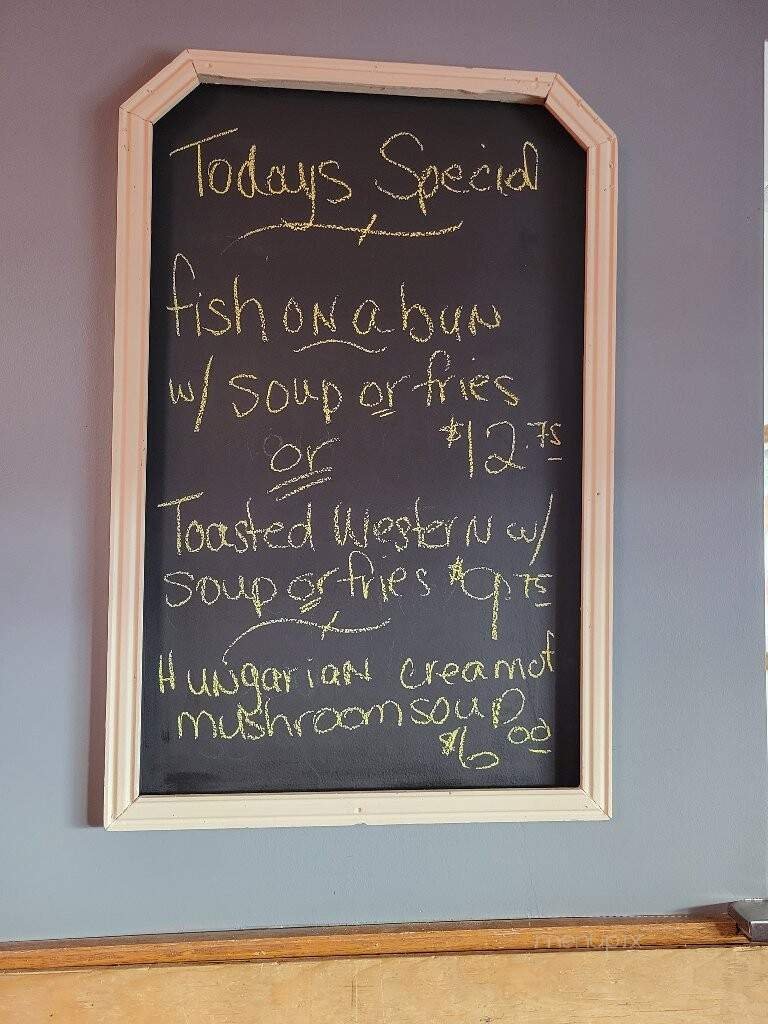 Todays Special
fish on a bun
w/ soup or fries
or $12.75
Toasted Western w/
soup or fries $9.75
Hungarian cream of
mushroom soup
$6.00
menupix